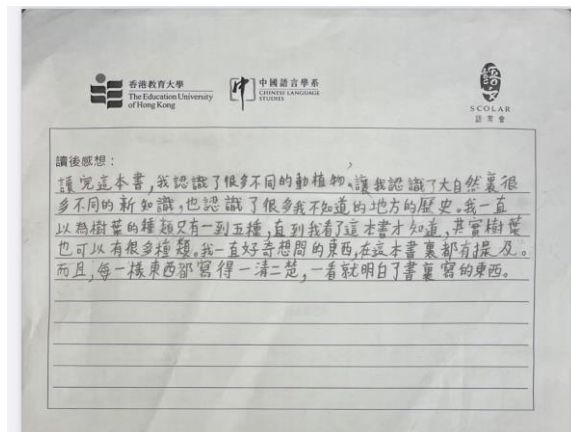 香港教育大學
The Education University
of Hong Kong
中國語言學系
CHINESE LANGUAGE
STUDIES
語文
SCOLAR
語常會
讀後感想：
讀完這本書，我認識了很多不同的動植物，讓我認識了大自然裏很
多不同的新知識，也認識了很多我不知道的地方的歷史。我一直
以為樹葉的種類只有一到五種，直到我看了這本書才知道，其實樹葉
也可以有很多種類。我一直好奇想問的東西，在這本書裏都有提及。
而且，每一樣東西都寫得一清二楚，一看就明白了書裏寫的東西。